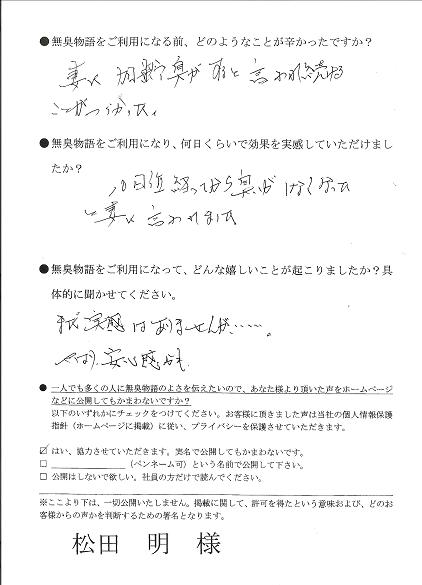 ●無臭物語をご利用になる前、どのようなことが辛かったですか？
妻に加齢臭がすると言われ続ける
ことがつらかった。
●無臭物語をご利用になり、何日くらいで効果を実感していただけまし
たか？
10日位経ってから臭いがなくなった
と妻に言われました
●無臭物語をご利用になって、どんな嬉しいことが起こりましたか？具
体的に聞かせてください。
まだ実感はありませんが……。
やはり、安心感かも
●一人でも多くの人に無臭物語のよさを伝えたいので、あなた様より頂いた声をホームページ
などに公開してもかまわないですか？
以下のいずれかにチェックをつけてください。お客様に頂きました声は当社の個人情報保護
指針（ホームページに掲載）に従い、プライバシーを保護させていただきます。
☑ はい、協力させていただきます。実名で公開してもかまわないです。
□ ＿＿＿＿＿＿（ペンネーム可）という名前で公開して下さい。
□ 公開はしないで欲しい。社員の方だけで読んでください。
※ここより下は、一切公開いたしません。掲載に関して、許可を得たという意味および、どのお
客様からの声かを判断するための署名となります。
松田 明 様